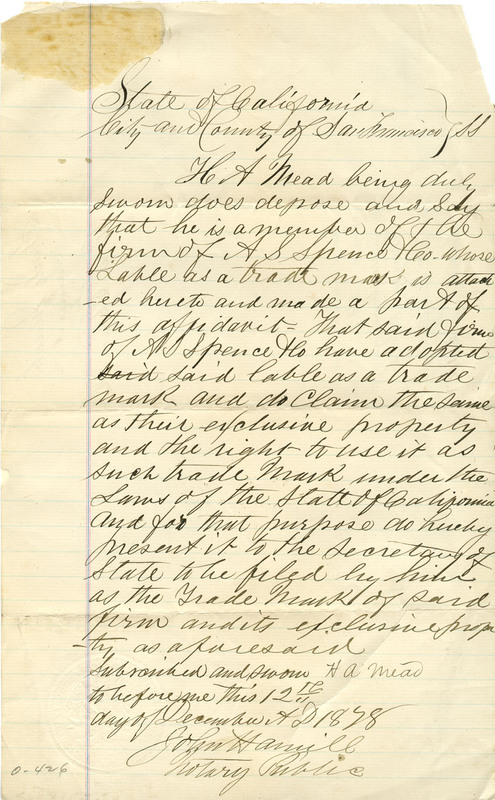 State of California
City and County of San Francisco } SS
H A Mead being duly
sworn does depose and Say
that he is a member of the
firm of A S Spence & Co whose
Lable as a trade mark is attach
-ed hereto and made a part of
this affidavit - That said firm
of A S Spence & Co have adopted
said said lable as a trade
mark and do Claim the same
as their exclusive property
and the right to use it as
such trade mark under the
Laws of the State of California
and for that purpose do hereby
present it to the Secretary of
State to be filed by him
as the Trade Mark of said
firm and its exclusive proper
-ty as aforesaid
Subscribed and sworn H A Mead
to before me this 12th
day of December A D 1878
John Hamill
Notary Public
0-426